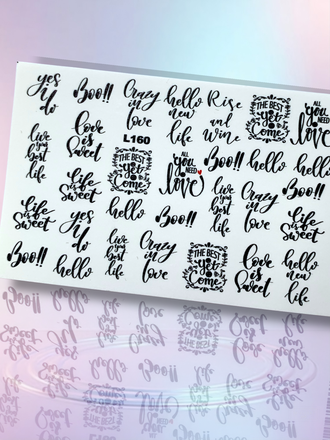 yes
I
do
Boo!!
Crazy
in
love
hello
new
life
Rise
and
Wine
THE BEST
is
yet
to
Come
ALL
you
NEED
is
love
live
you
best
life
love
is
Sweet
L160
THE BEST
is
yet
to
Come
ALL
you
NEED
is
love
Boo!!
hello
hello
Life
is
Sweet
yes
I
do
hello
Boo!!
live
you
best
life
Crazy
in
love
Boo!!
Life
is
Sweet
Boo!!
hello
live
you
best
life
Crazy
in
love
THE BEST
is
yet
to
Come
love
is
Sweet
hello
new
life